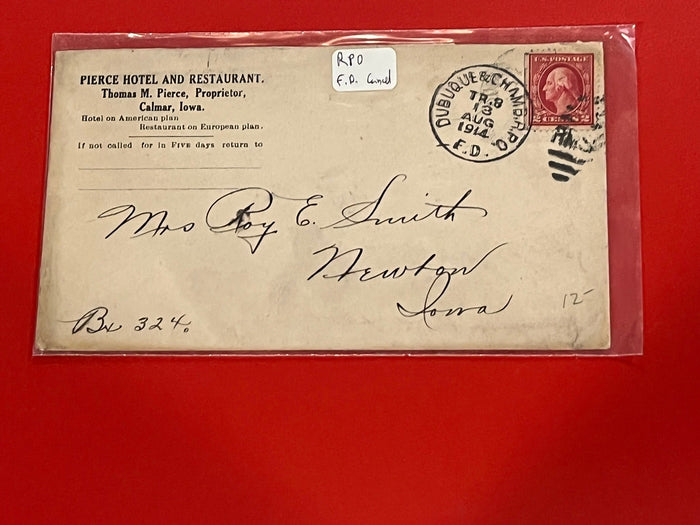 PIERCE HOTEL AND RESTAURANT.
Thomas M. Pierce, Proprietor,
Calmar, Iowa.
Hotel on American plan
Restaurant on European plan.
If not called for in FIVE days return to
RPO
F.D. Cancel
DUBUQUE & CHAMB. R.P.O.
TR.8
13
AUG
1914
F.D.
U.S. POSTAGE
2 CENTS 2
RMS
Mrs Roy E. Smith
Newton
Iowa
Bx 324.
12-